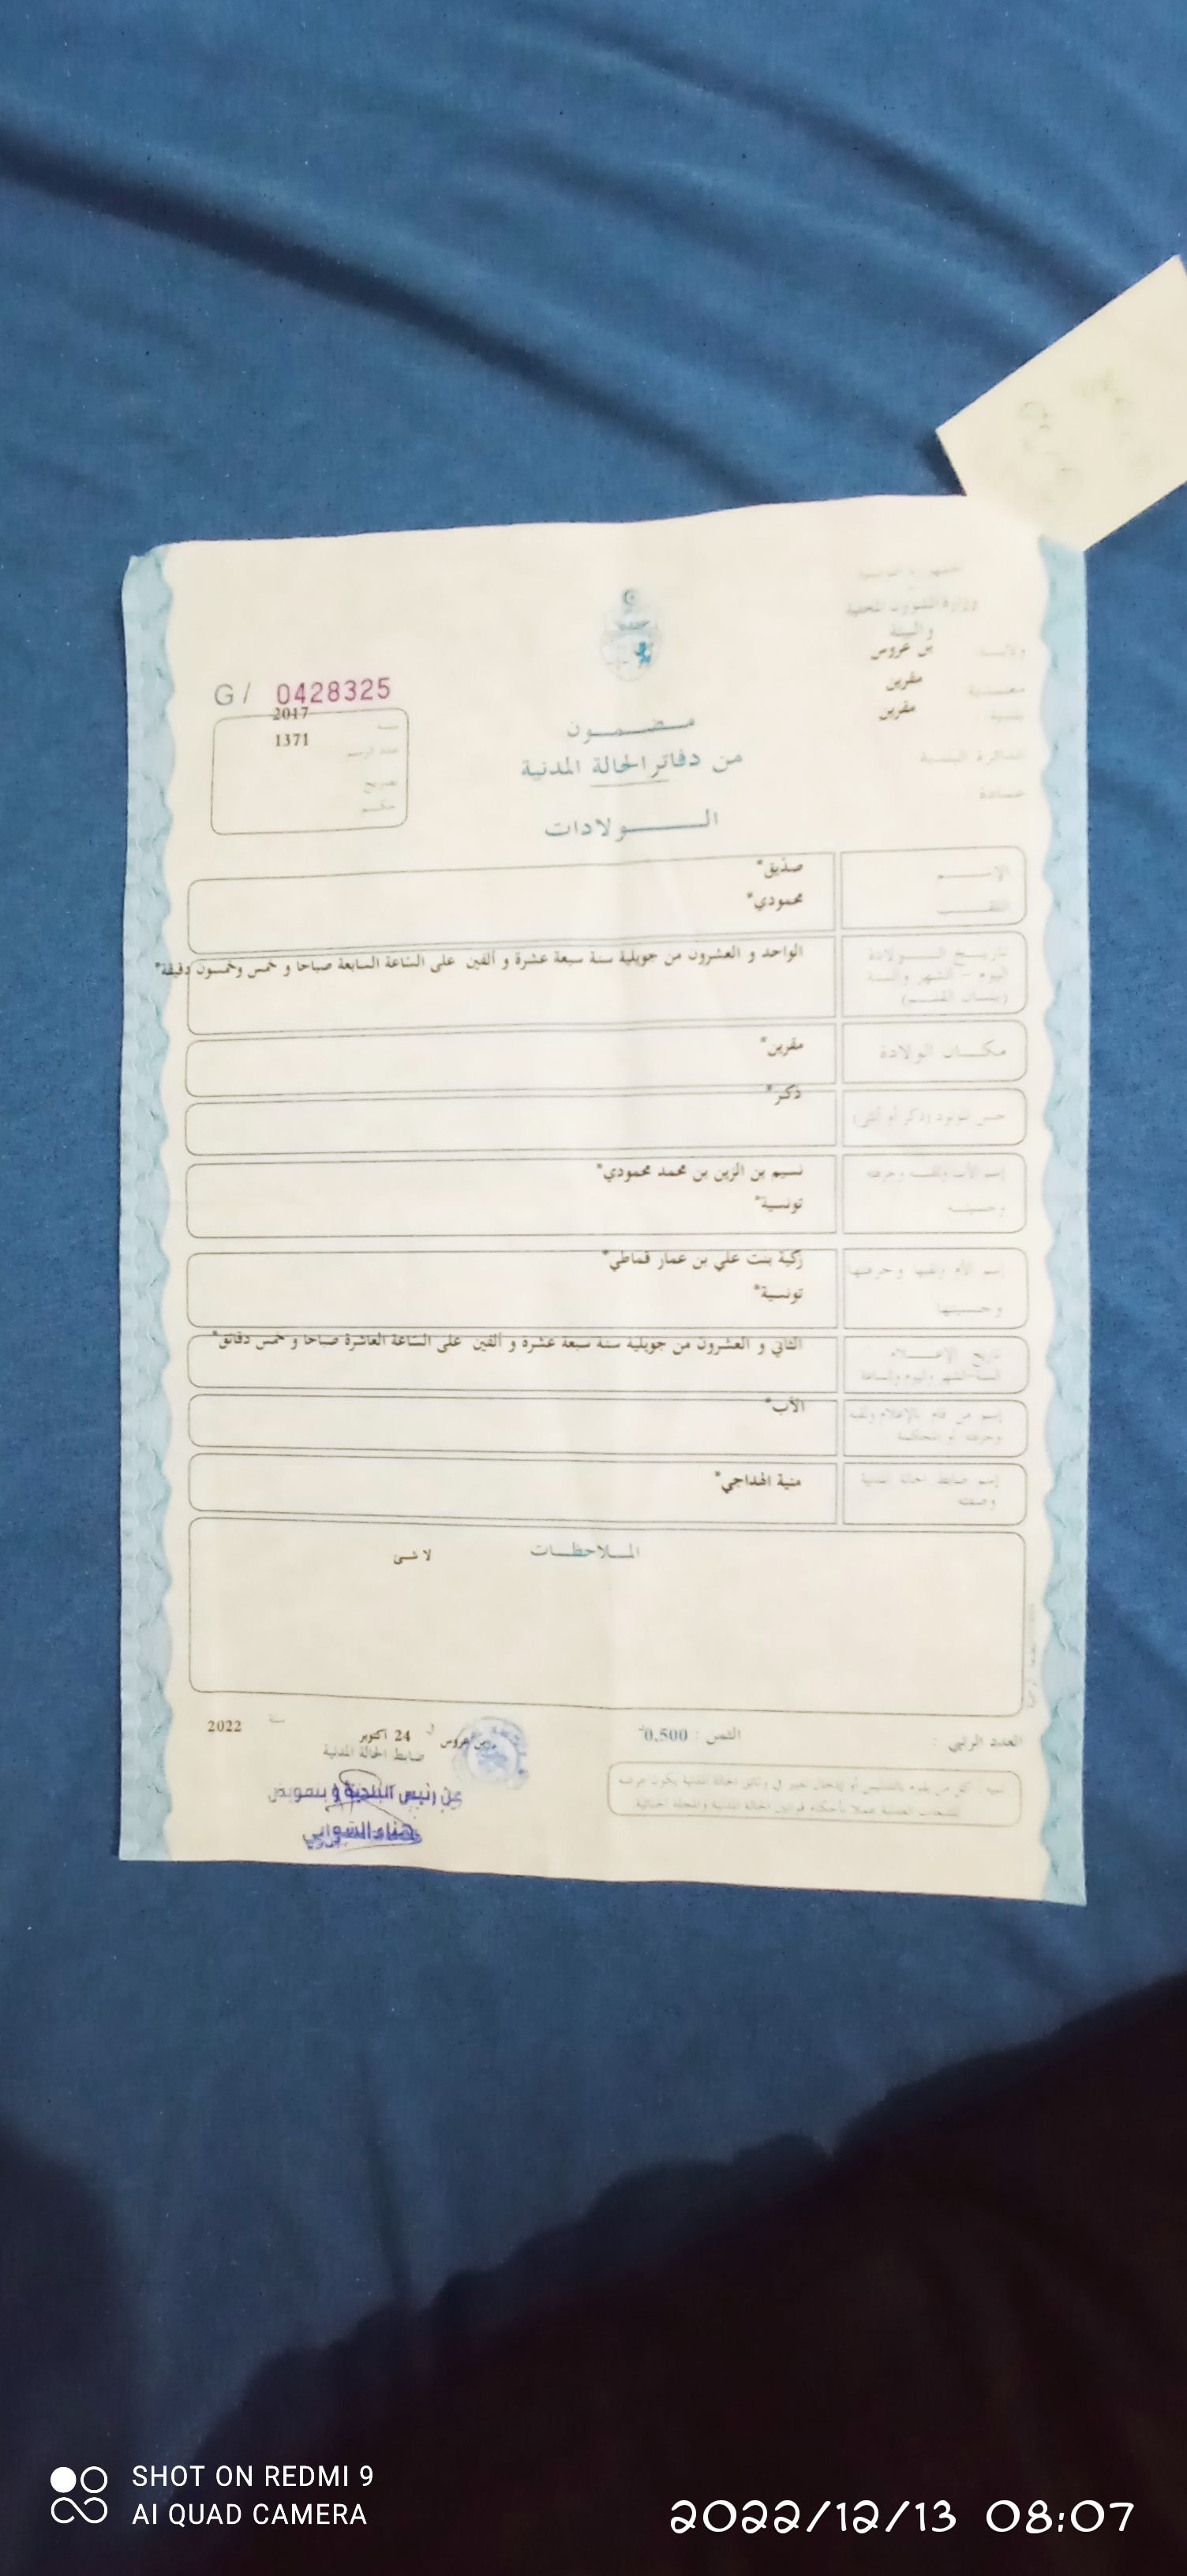 الجمهورية التونسية
وزارة الشؤون المحلية
والبيئة
ولايــة بن عروس
معتمدية مقرين
بلدية مقرين
الدائرة البلدية
عمادة
G/ 0428325
سنة 2017
عدد الرسم 1371
تصريح
حكم
مضمون
من دفاتر الحالة المدنية
الـــولادات
الإســـم صدّيق*
اللقـــب محمودي*
تاريــخ الــولادة الواحد و العشرون من جويلية سنة سبعة عشرة و ألفين على السّاعة السابعة صباحا و خمس وخمسون دقيقة*
اليوم - الشهر والسنة
(بلسان القلــم)
مكــان الولادة مقرين*
جنس المولود (ذكر أو أنثى) ذكر*
إسم الأب ولقبــه وحرفته نسيم بن الزين بن محمد محمودي*
وجنسيتــه تونسية*
إسم الأم ولقبها وحرفتها زكية بنت علي بن عمار قماطي*
وجنسيتها تونسية*
تاريخ الإعــلام الثاني و العشرون من جويلية سنة سبعة عشرة و ألفين على السّاعة العاشرة صباحا و خمس دقائق*
السنة-الشهر واليوم والساعة
إسم من قام بالإعلام ولقبه الأب*
وحرفته أو المحكمة
إسم ضابط الحالة المدنية منية الهداجي*
وصفته
المــلاحظــات لا شئ
العدد الرتبي :
الثمن : 0,500
بن عروس في 24 أكتوبر سنة 2022
ضابط الحالة المدنية
عن رئيس البلدية و بتفويض
هناء الشوابي
تنبيه كل من يقوم بالتدليس أو إدخال تغيير في وثائق الحالة المدنية يكون عرضة
للتتبعات العدلية عملا بأحكام قوانين الحالة المدنية والمجلة الجنائية
SHOT ON REDMI 9
AI QUAD CAMERA
2022/12/13 08:07